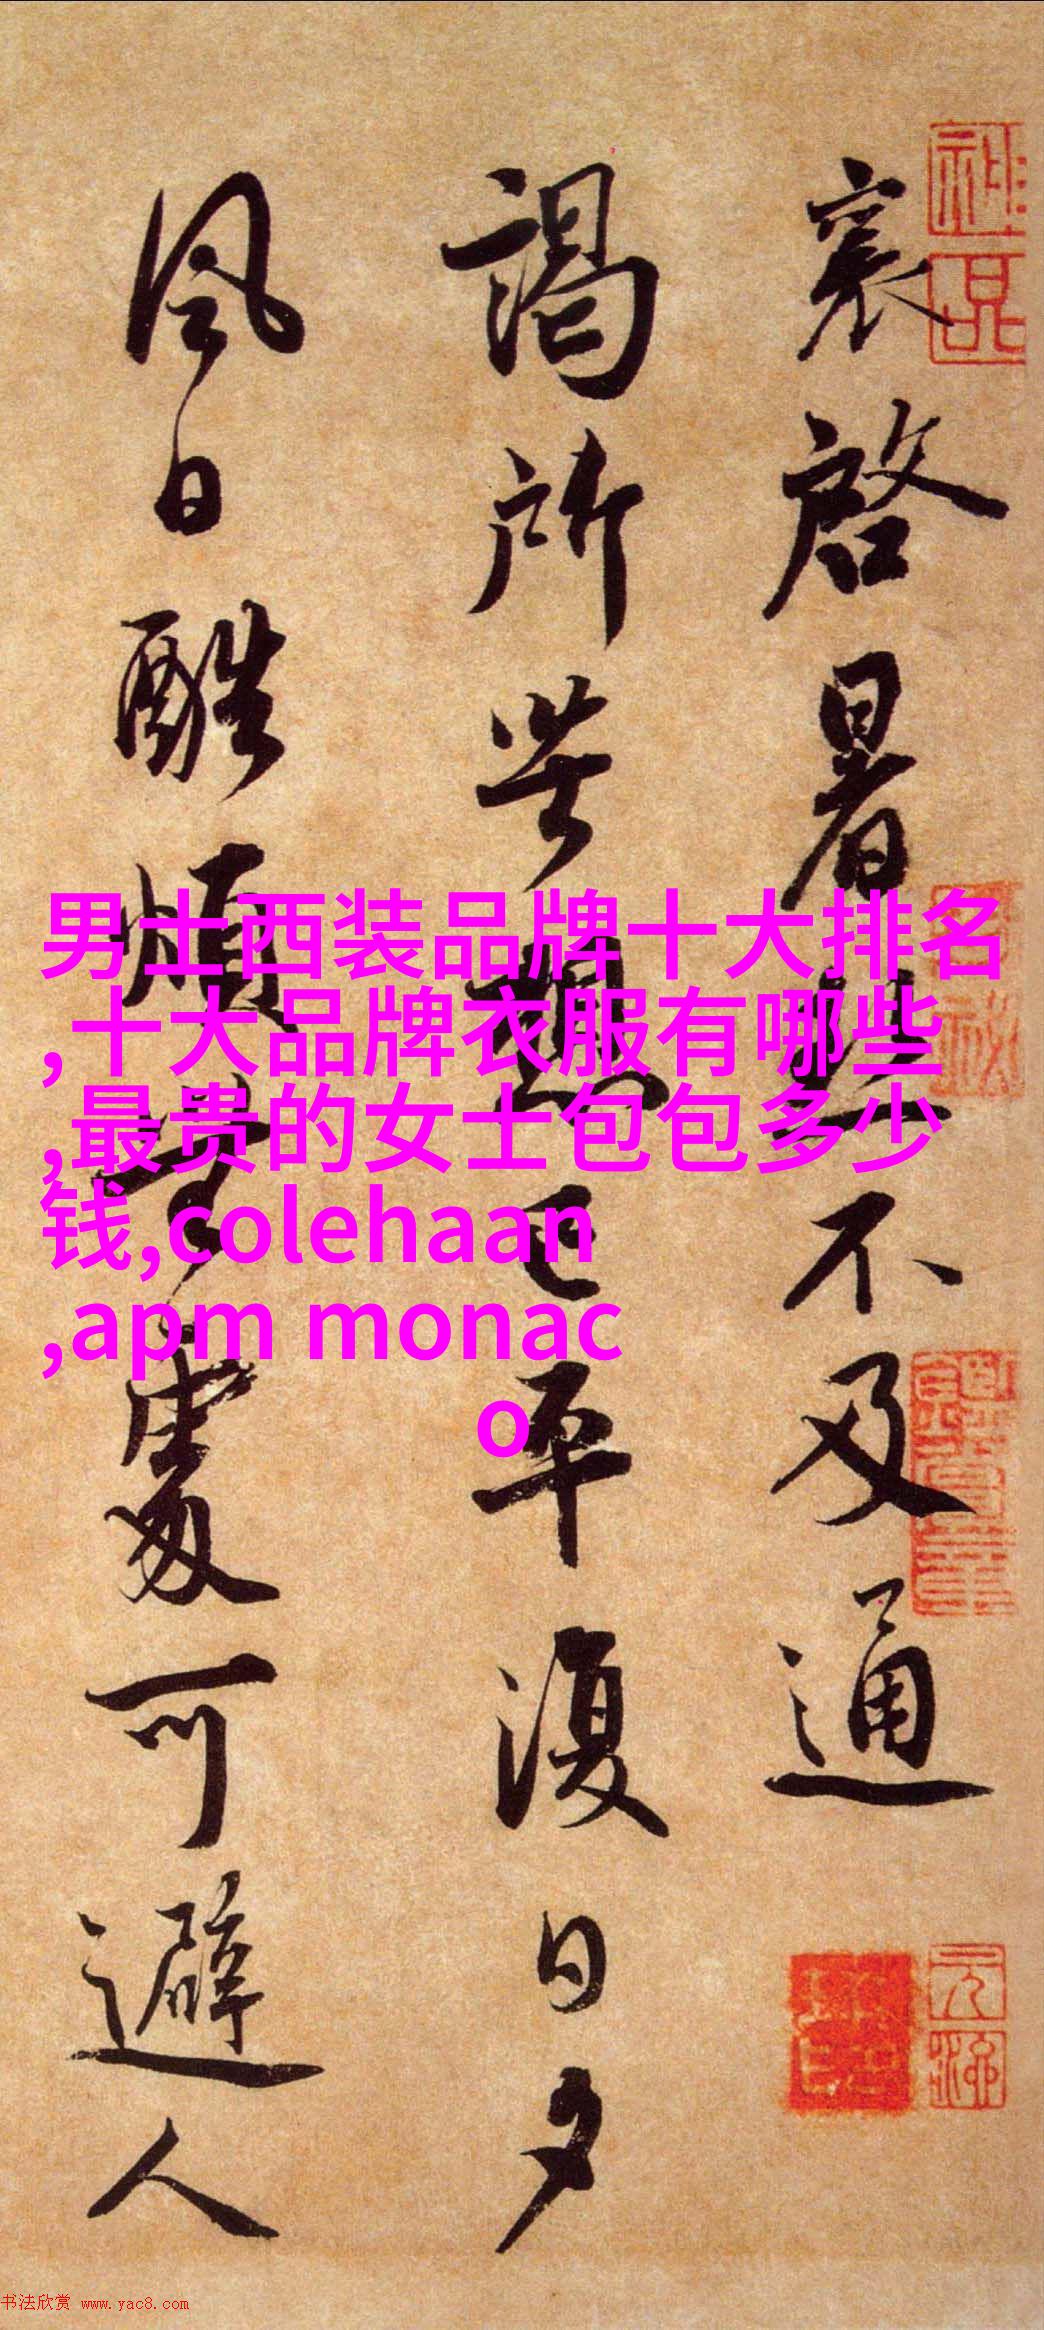 襄啓暑熱不及通
謁所苦想已平復日夕
風日酷煩無處可避人
男士西装品牌十大排名
,十大品牌衣服有哪些
,最贵的女士包包多少
钱,colehaan
,apm monac
o
书法欣赏 www.yac8.com